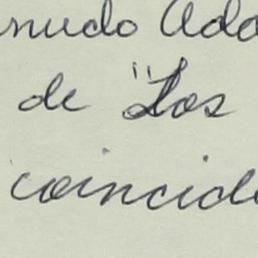 nudo Ado
de "Los
coincide